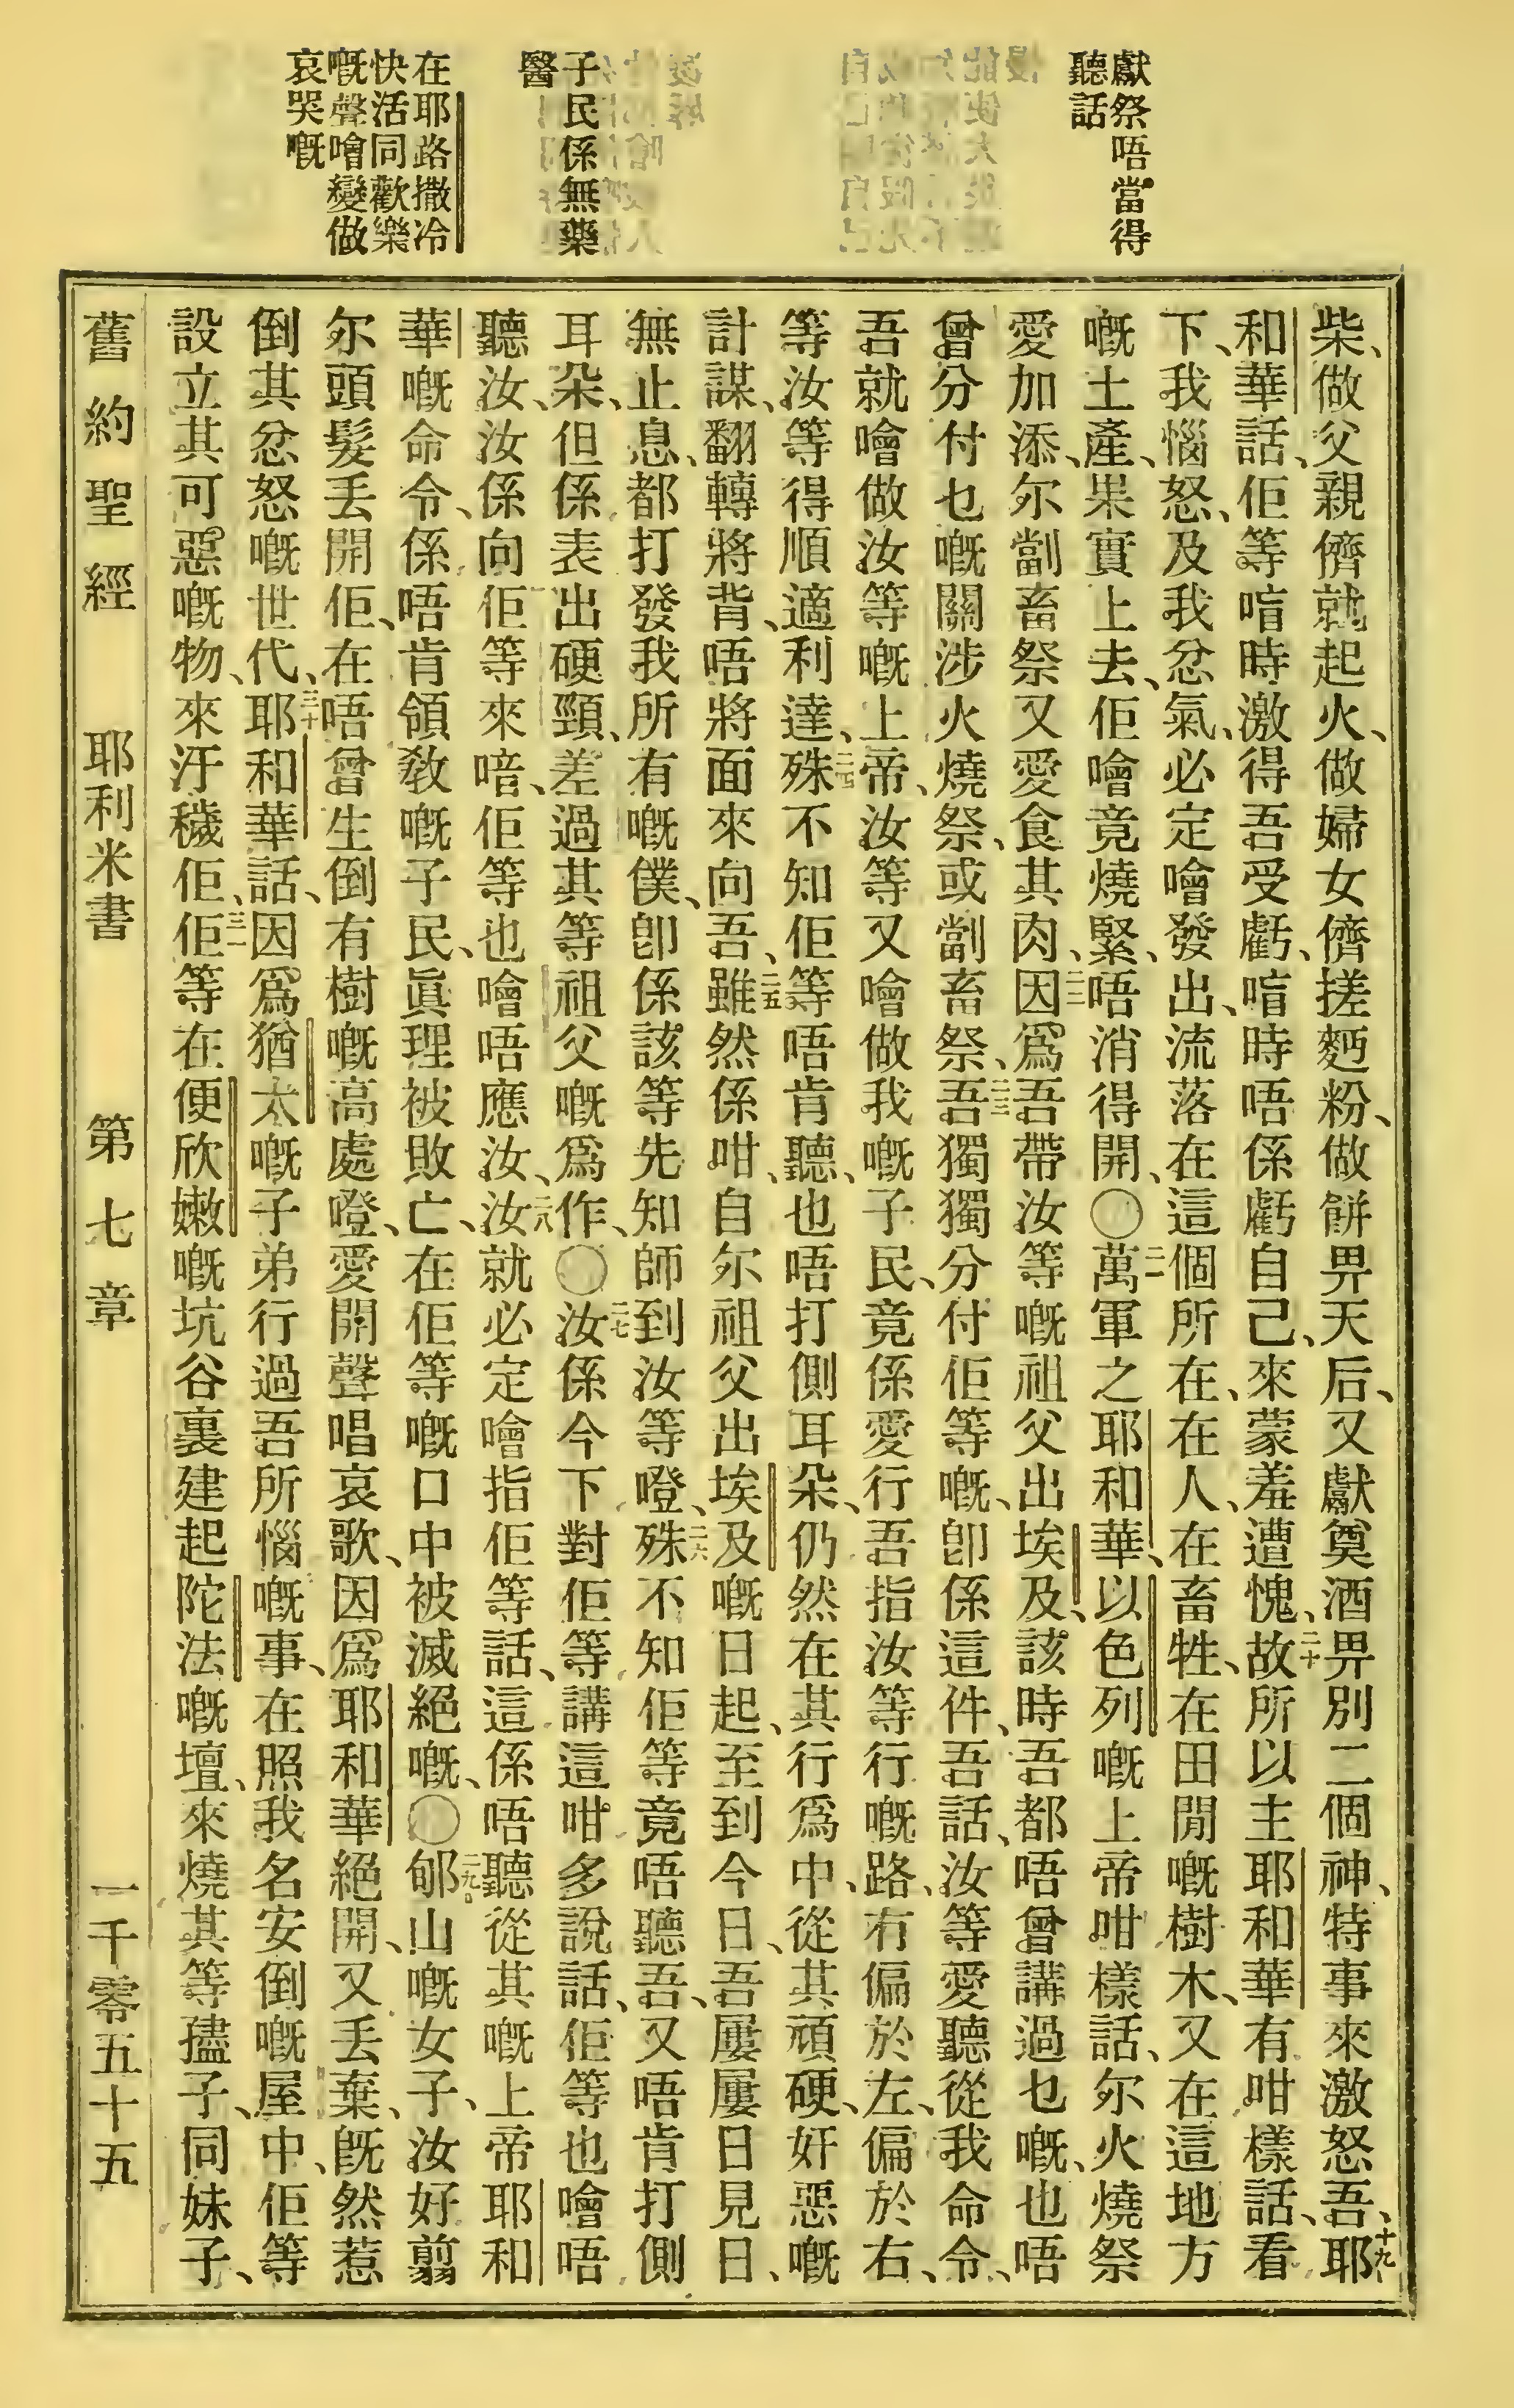 獻祭唔當得
聽話
子民係無藥
醫
在耶路撒冷
快活同歡樂
嘅聲噲變做
哀哭嘅
柴、做父親儕就起火、做婦女儕搓麪粉、做餅畀天后、又獻奠酒畀別二個神、特事來激怒吾、十九耶
和華話、佢等喑時激得吾受虧、喑時唔係虧自己、來蒙羞遭愧、二十故所以主耶和華有咁樣話、看
下、我惱怒、及我忿氣、必定噲發出、流落在這個所在、在人、在畜牲、在田閒嘅樹木、又在這地方
嘅土產、果實上去、佢噲竟燒緊、唔消得開、〇二一萬軍之耶和華、以色列嘅上帝咁樣話、尔火燒祭
愛加添、尔劏畜祭又愛食其肉、二二因爲吾帶汝等嘅祖父出埃及、該時吾都唔曾講過乜嘅、也唔
曾分付乜嘅關涉火燒祭、或劏畜祭、二三吾獨獨分付佢等嘅、卽係這件、吾話、汝等愛聽從我命令、
吾就噲做汝等嘅上帝、汝等又噲做我嘅子民、竟係愛行吾指汝等行嘅路、冇偏於左、偏於右、
等汝等得順適利達、二四殊不知佢等唔肯聽、也唔打側耳朵、仍然在其行爲中、從其頑硬、奸惡嘅
計謀、翻轉將背、唔將面來向吾、二五雖然係咁、自尔祖父出埃及嘅日起、至到今日、吾屢屢日見日、
無止息、都打發我所有嘅僕、卽係該等先知師到汝等嶝、二六殊不知佢等竟唔聽吾、又唔肯打側
耳朵、但係表出硬頸、差過其等祖父嘅爲作、〇二七汝係今下對佢等講這咁多說話、佢等也噲唔
聽汝、汝係向佢等來喑、佢等也噲唔應汝、二八汝就必定噲指佢等話、這係唔聽從其嘅上帝耶和
華嘅命令、係唔肯領敎嘅子民、眞理被敗亡、在佢等嘅口中被滅絕嘅、〇二九郇山嘅女子、汝好翦
尔頭髮丟開佢、在唔曾生倒有樹嘅高處嶝、愛開聲唱哀歌、因爲耶和華絕開、又丟棄、旣然惹
倒其忿怒嘅世代、三十耶和華話、因爲猶太嘅子弟行過吾所惱嘅事、在照我名安倒嘅屋中、佢等
設立其可惡嘅物、來汙穢佢、三一佢等在便欣嫩嘅坑谷裏建起陀法嘅壇、來燒其等𧖣子、同妹子、
舊約聖經　耶利米書　第七章　一千零五十五